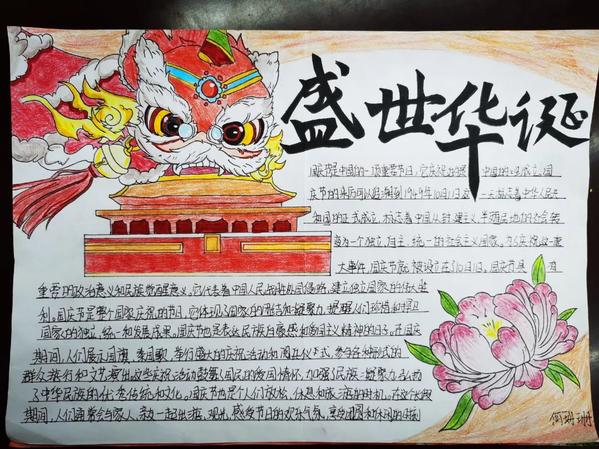 盛世华诞
国庆节是中国的一项重要节日,它庆祝
中国的
成立。国
庆节的来历可以追溯到1949年10月1日,
标志着中华人民共
和国的正式成立,标志着中国从封建主义、半殖民地的社会转
变为一个独立、自主、统一的社会主义国家。为了庆祝这一重
大事件,国庆节被设立在10月1日。国庆节具有
重要的政治意义和民族
意义。它代表着中国人民
外国侵略,建立独立国家的伟大胜
利。国庆节是整个国家庆祝的节日,它体现了国家的
凝聚力,提醒人们珍惜和捍卫
国家的独立、统一和发展成果。国庆节也是表达民族自豪感和爱国主义精神的日子。在国庆
期间,人们展示国旗、奏国歌,举行盛大的庆祝活动和阅兵仪式,参与各种形式的
群众游行和文艺演出,这些庆祝活动
国民的爱国情怀,加强了民族
凝聚力,弘扬
了中华民族的优秀传统和文化。国庆节也是个人们放松、休息和旅游的时机。在这个长假
期间,人们通常会与家人、亲友一起出游、观光,感受节日的欢乐气氛,享受团圆和休闲的时刻
何姗珊